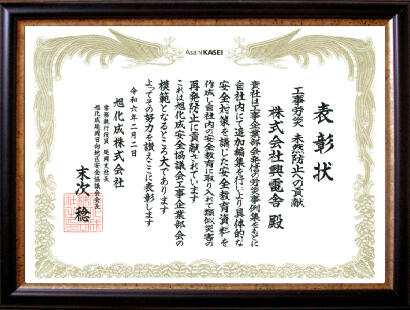 AsahiKASEI
表彰状
工事労災 未然防止への貢献
株式会社興電舎 殿
貴社は工事企業部会発信の労災事例集をもとに
自社内にて追加編集を行いより具体的な
安全対策を講じた安全教育資料を
作成し自社内の安全教育に取り入れて類似災害の
再発防止に貢献されています
これは旭化成安全協議会工事企業部会の
模範となるところ大であります
よってその努力を讃えここに表彰します
令和六年二月二日
旭化成株式会社
常務執行役員 延岡支社長
旭化成延岡日向地区安全協議会会長
末次 稔